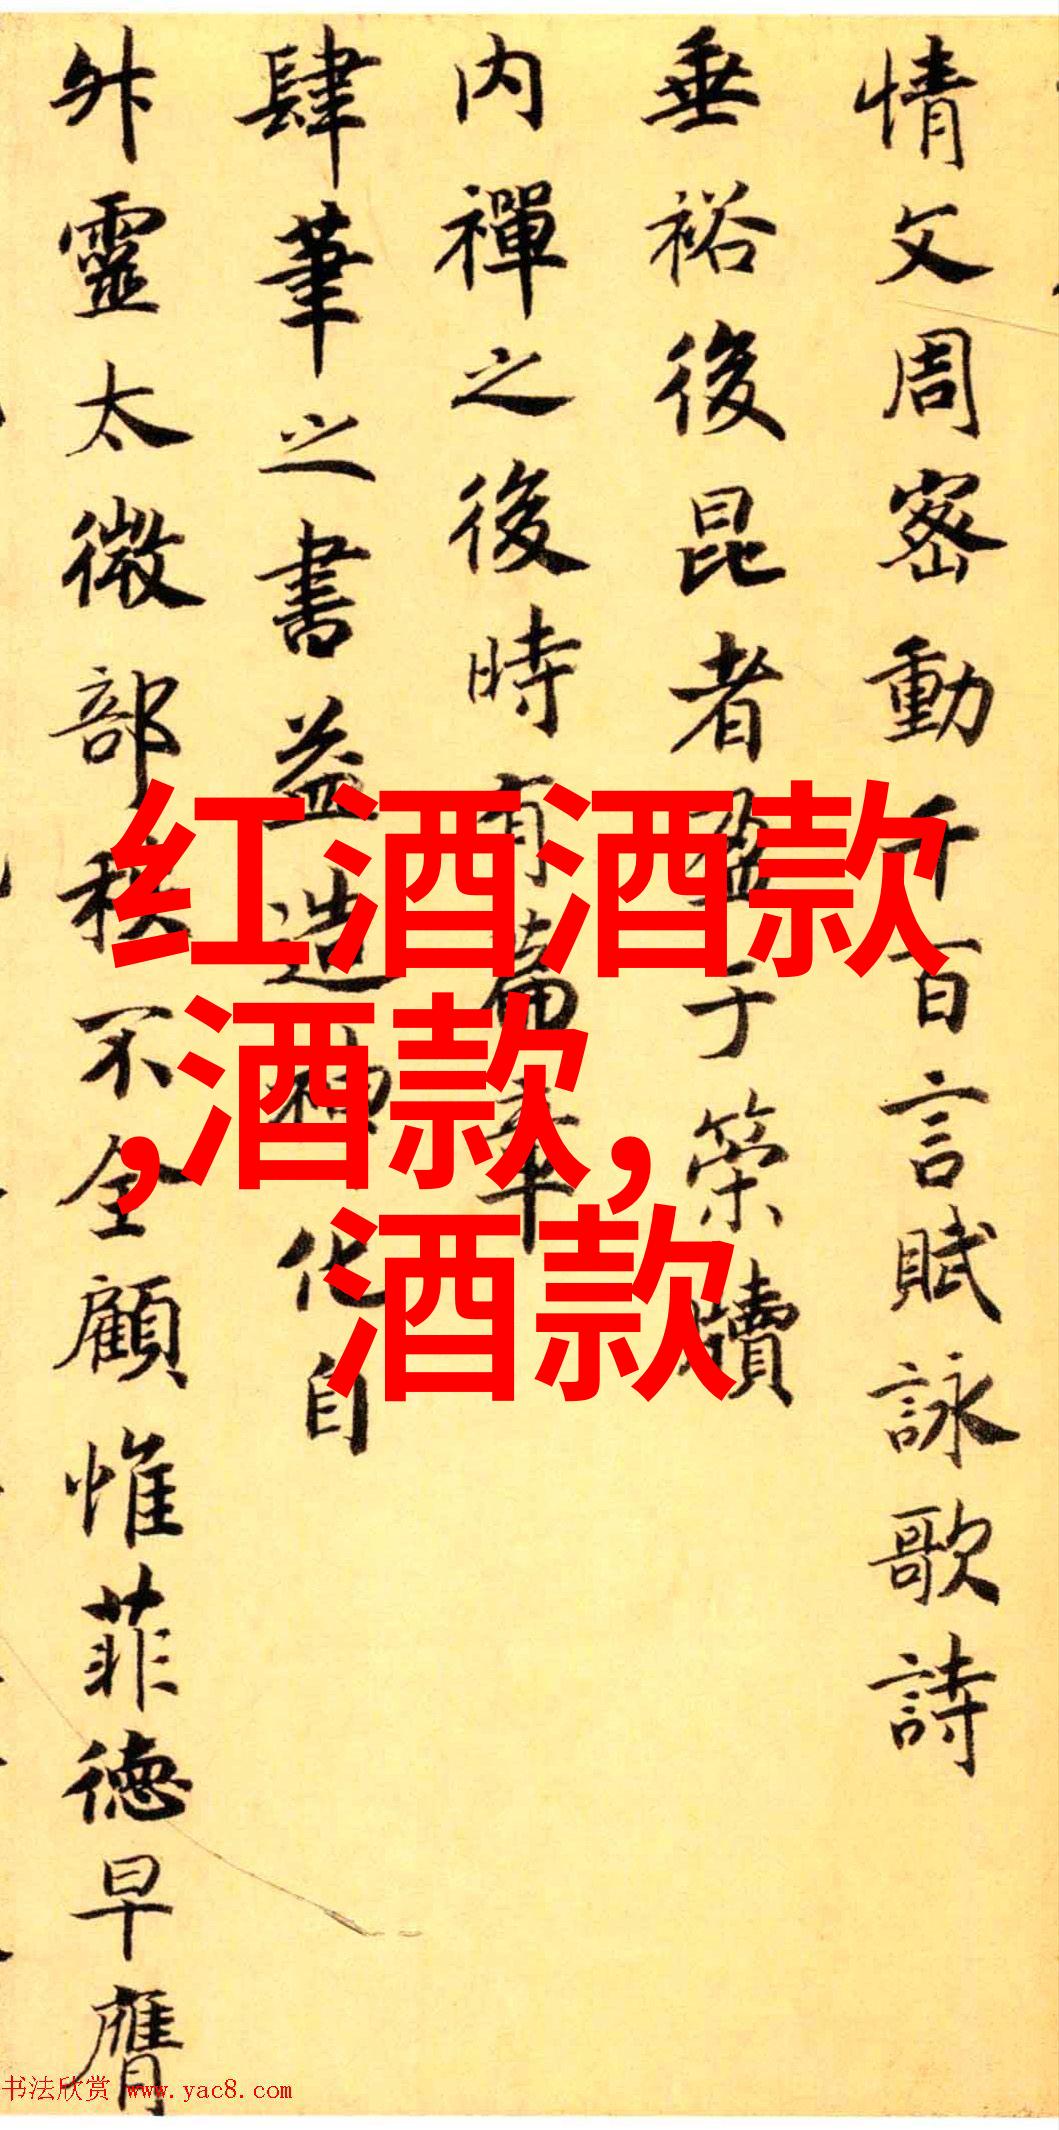 情文周密動千百言賦詠歌詩
垂裕後昆者盈于策牘
内禪之後時有篇章
肆筆之書益造神化自
外靈太微部秩不全顧惟菲德早膺
红酒酒款
,酒款,
酒款
书法欣赏 www.yac8.com